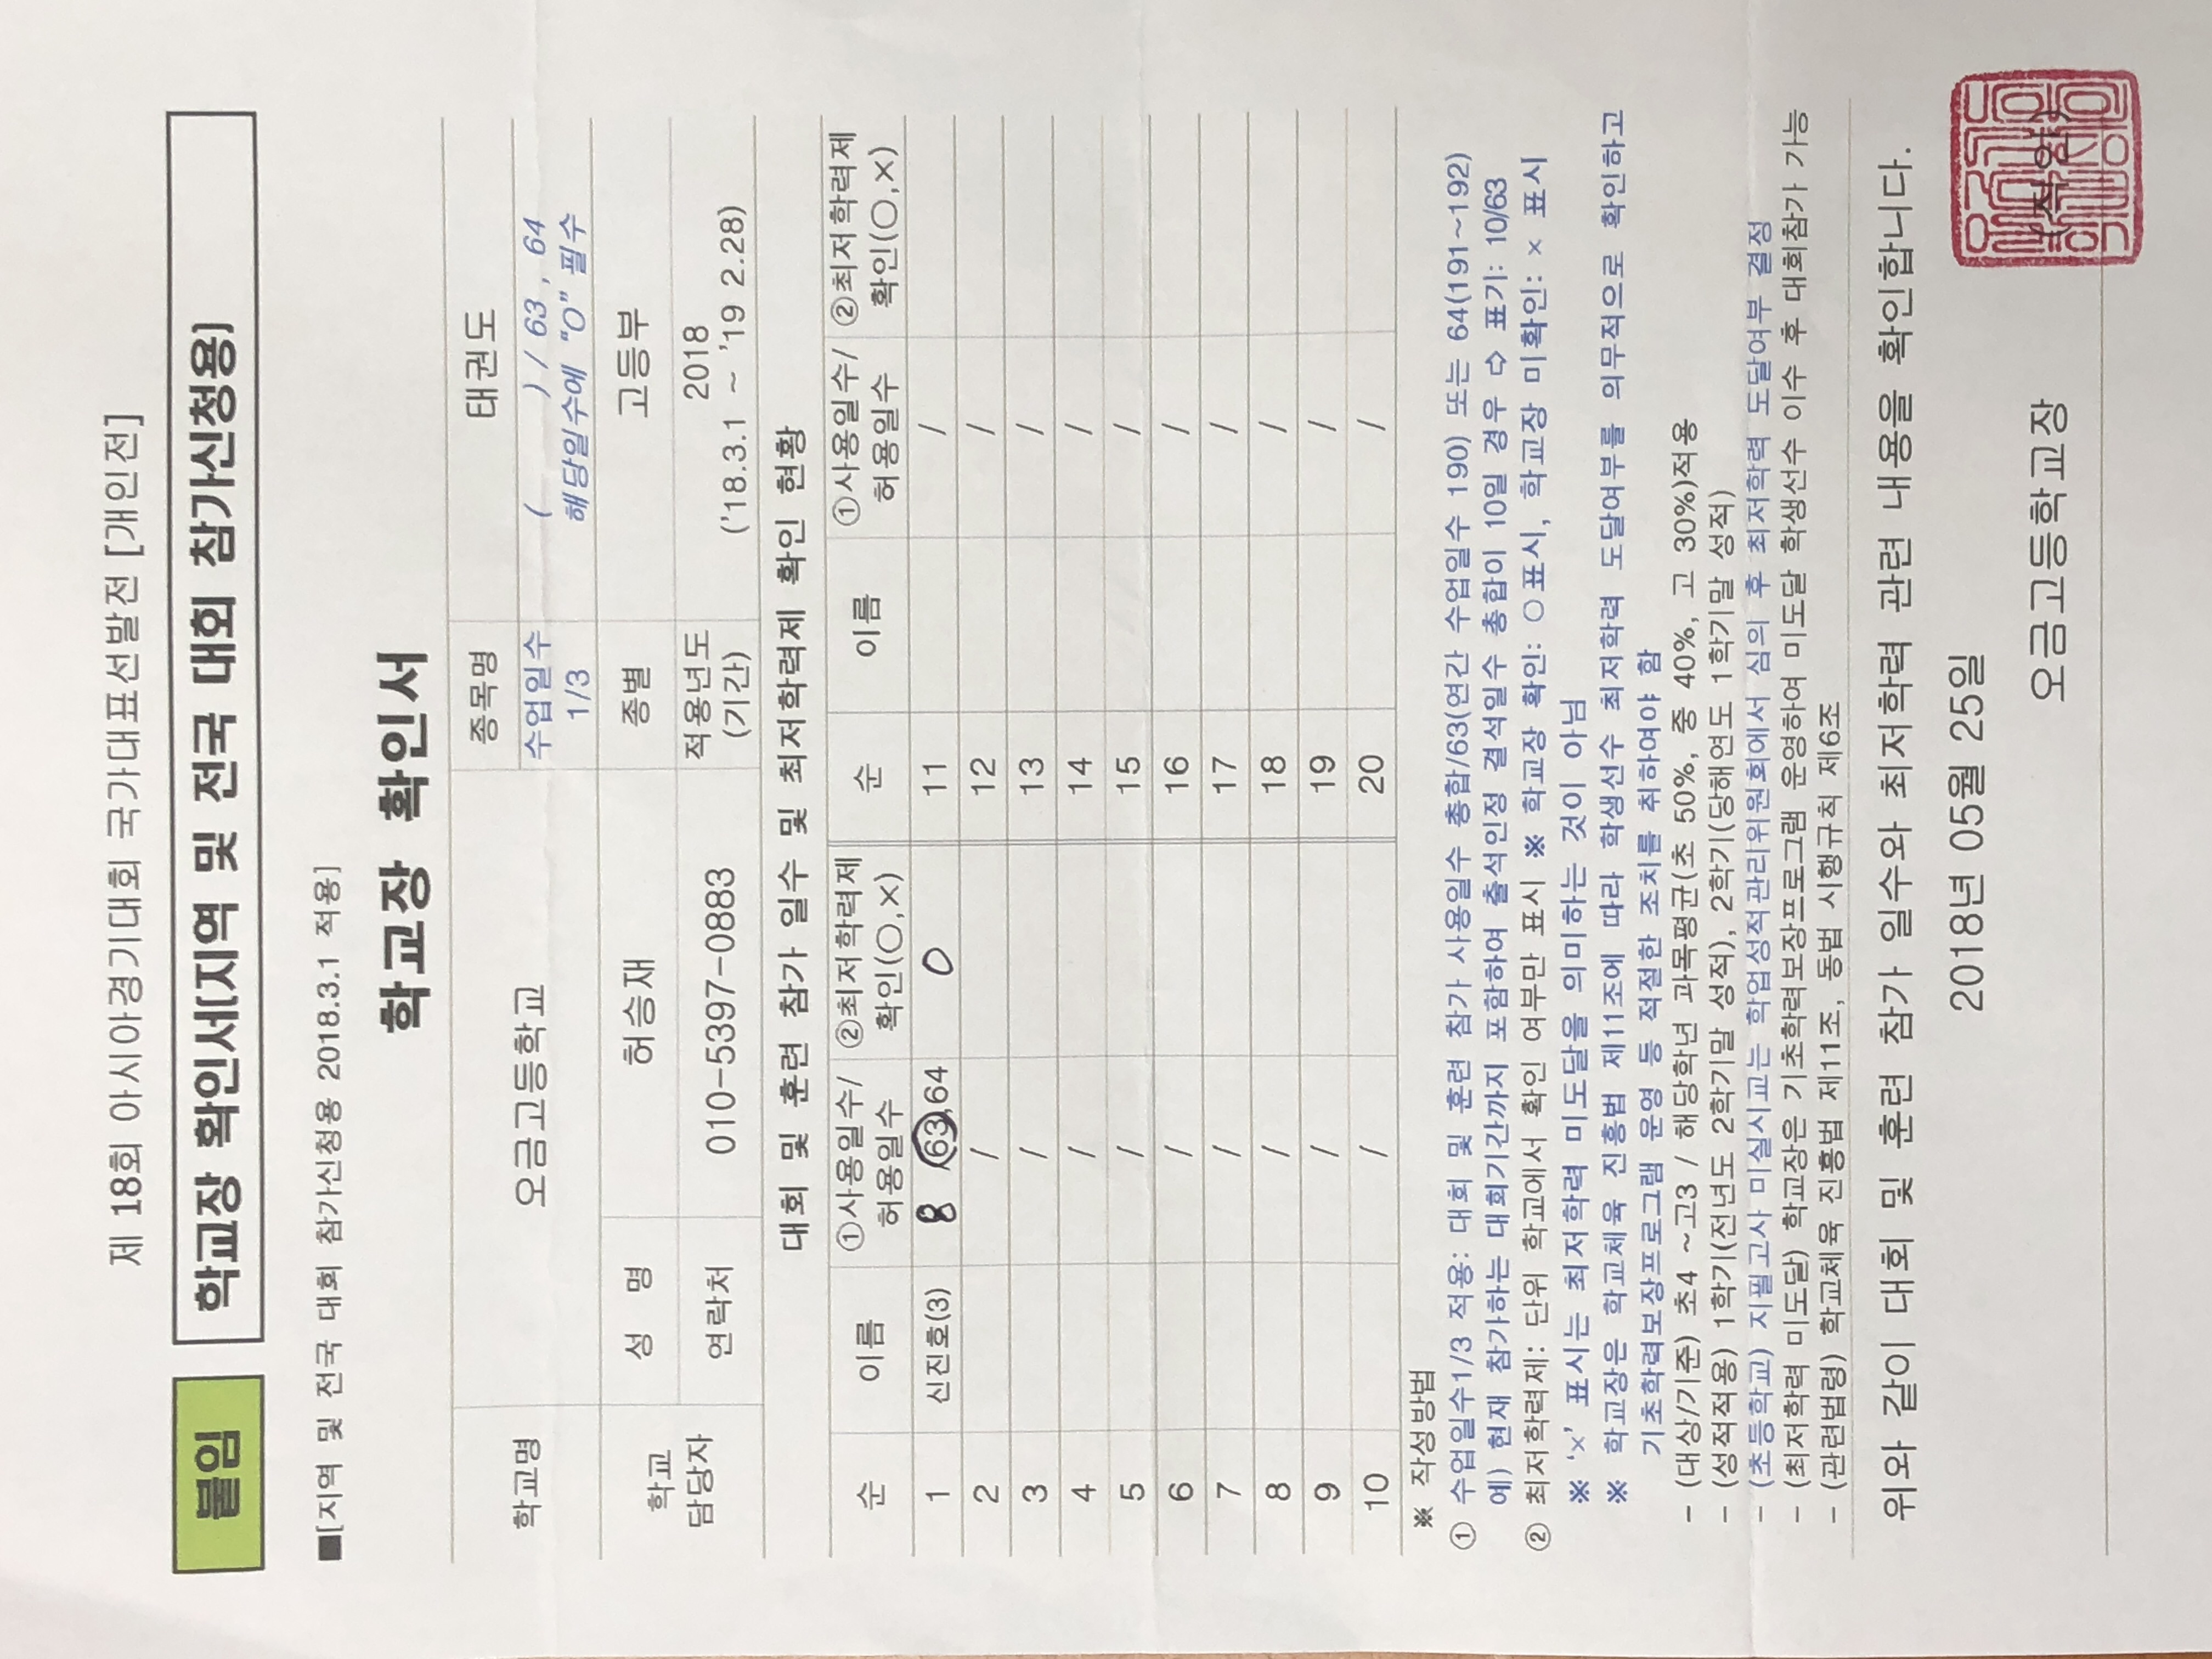 제 18회 아시아경기대회 국가대표선발전 [개인전]
붙임 학교장 확인서(지역 및 전국 대회 참가신청용)
■[지역 및 전국 대회 참가신청용 2018.3.1 적용]
학교장 확인서
학교명 오금고등학교 종목명 태권도
수업일수 1/3 ( ) / 63 , 64
해당일수에 "O" 필수
학교 담당자 성 명 허승재 종별 고등부
연락처 010-5397-0883 적용년도 (기간) 2018
('18.3.1 ~ '19 2.28)
대회 및 훈련 참가 일수 및 최저학력제 확인 현황
순 이름 ①사용일수/허용일수 ②최저학력제 확인(○,×) 순 이름 ①사용일수/허용일수 ②최저학력제 확인(○,×)
1 신진호(3) 8 /63,64 O 11 /
2 / 12 /
3 / 13 /
4 / 14 /
5 / 15 /
6 / 16 /
7 / 17 /
8 / 18 /
9 / 19 /
10 / 20 /
※ 작성방법
① 수업일수1/3 적용: 대회 및 훈련 참가 사용일수 총합/63(연간 수업일수 190) 또는 64(191~192)
예) 현재 참가하는 대회기간까지 포함하여 출석인정 결석일수 총합이 10일 경우 ⇨ 표기: 10/63
② 최저학력제: 단위 학교에서 확인 여부만 표시 ※ 학교장 확인: ○표시, 학교장 미확인: × 표시
※ '×' 표시는 최저학력 미도달을 의미하는 것이 아님
※ 학교장은 학교체육 진흥법 제11조에 따라 학생선수 최저학력 도달여부를 의무적으로 확인하고
기초학력보장프로그램 운영 등 적절한 조치를 취하여야 함
- (대상/기준) 초4 ~고3 / 해당학년 과목평균(초 50%, 중 40%, 고 30%)적용
- (성적적용) 1학기(전년도 2학기말 성적), 2학기(당해연도 1학기말 성적)
- (초등학교) 지필고사 미실시교는 학업성적관리위원회에서 심의 후 최저학력 도달여부 결정
- (최저학력 미도달) 학교장은 기초학력보장프로그램 운영하여 미도달 학생선수 이수 후 대회참가 가능
- (관련법령) 학교체육 진흥법 제11조, 동법 시행규칙 제6조
위와 같이 대회 및 훈련 참가 일수와 최저학력 관련 내용을 확인합니다.
2018년 05월 25일
오금고등학교장 (직인)